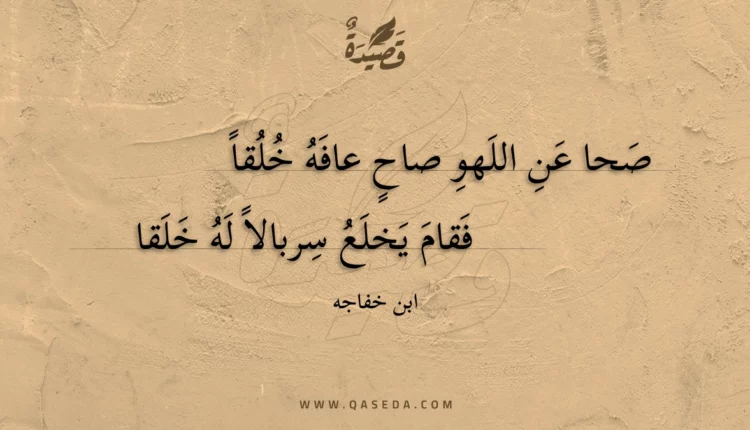 قَصِيْدَةٌ
صَحا عَنِ اللَهوِ صاحٍ عافَهُ خُلُقاً
فَقامَ يَخلَعُ سِربالاً لَهُ خَلَقا
ابن خفاجه
WWW.QASEDA.COM